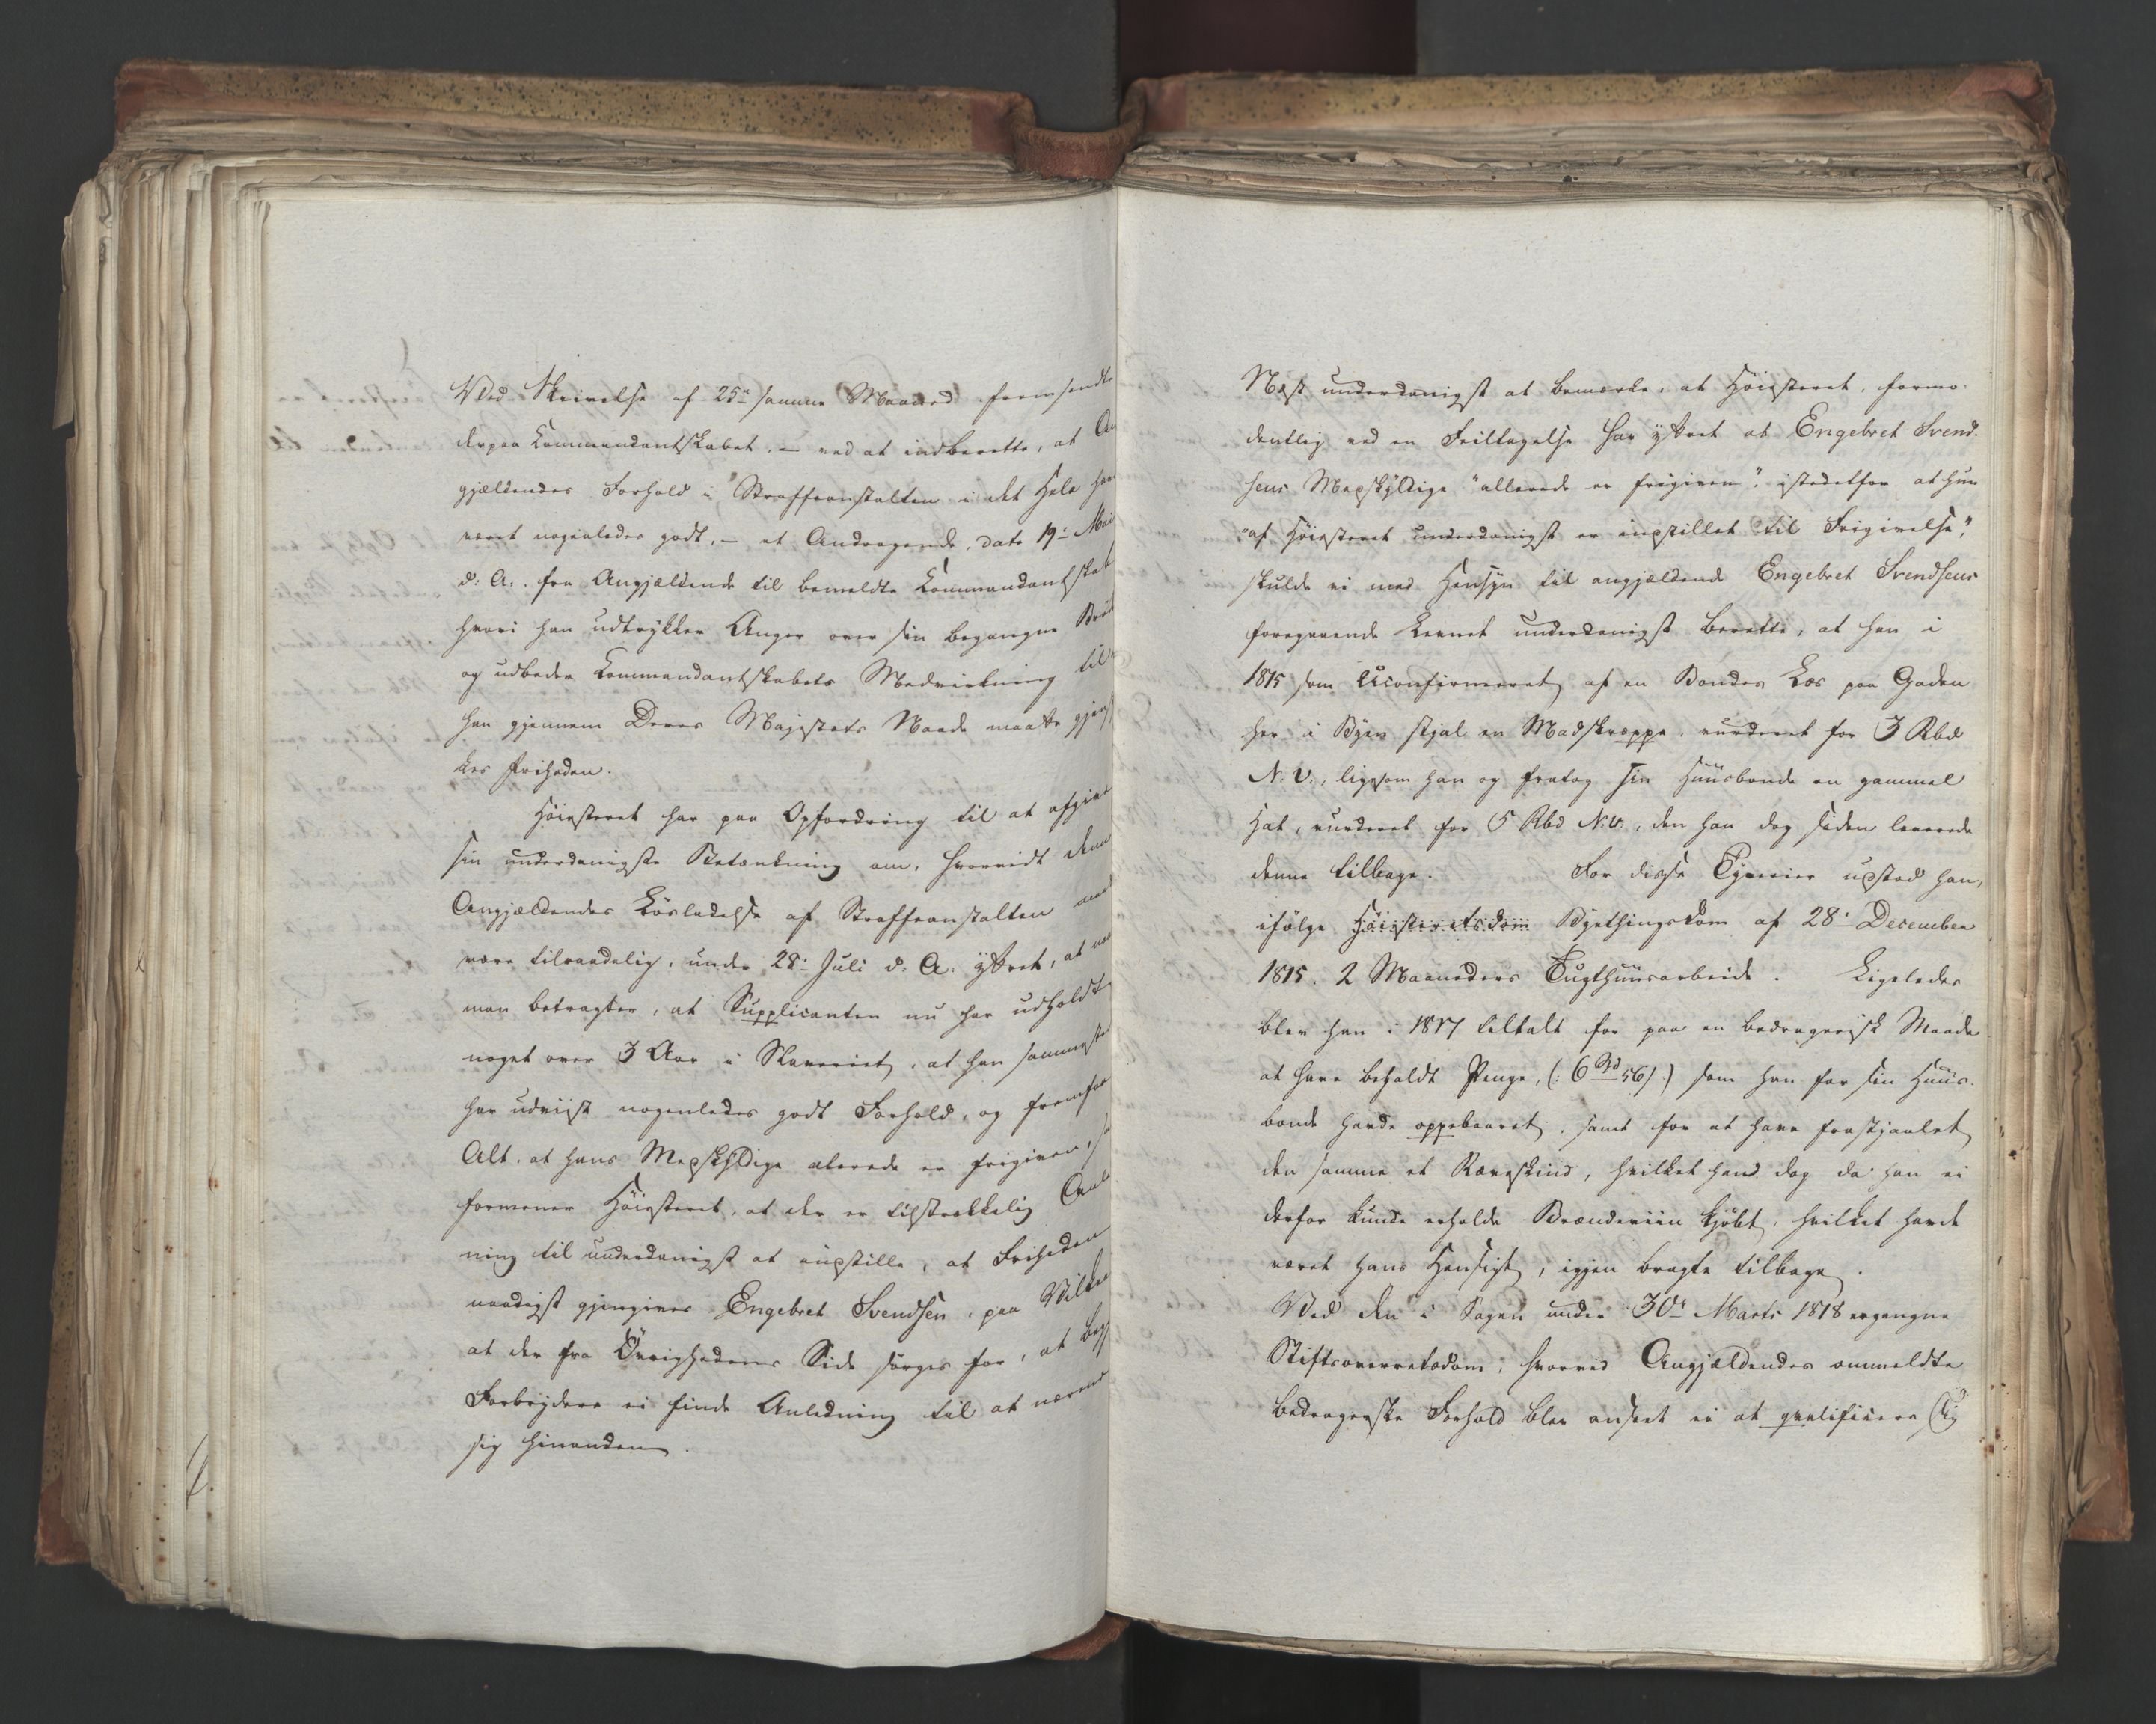 Ved Skrivelse af 25de samme Maaned fremsendte
derpaa Kommandantskabet, – ved at indberette, at An
gjældendes Forhold i Straffeanstalten i det Hele har
været nogenledes godt, – et Andragende, dat. 19de Mai
d: A:. fra Angjældende til bemeldte Kommandantskab
hvori han udtrykker Anger over sin begangne Brøde
og udbeder Kommandantskabets Medvirkning til
han gjennem Deres Majestæts Naade maatte gjens
kes Friheden.
Høiesteret har paa Opfordring til at afgive
sin underdanigste Betænkning om, hvorvidt denne
Angjældendes Løsladelse af Straffeanstalten maa
være tilraadelig, under 28de Juli d: A: yttret, at naar
man betragter, at Supplicanten nu har udholdt
noget over 3 Aar i Slaveriet, at han sammesteds
har udviist nogenledes godt Forhold, og fremfor
Alt, at hans Medskyldige alerede er frigiven, saa
formener Høiesteret, at der er tilstrækkelig Anled
ning til underdanigst at indstille, at Friheden
naadigst gjengives Engebret Svendsen, paa Vilkaar
at der fra Øvrighedens Side sørges for, at begge
Forbrydere ei finde Anledning til at nærme
sig hinanden.
Næst underdanigst at bemærke, at Høiesteret, formo-
dentlig ved en Feiltagelse har yttret at Engebret Svend-
sens Medskyldige "allerede er frigiven", istedetfor at hun
"af Høiesteret underdanigst er indstillet til Frigivelse",
skulde vi med Hensyn til angjældende Engebret Svendsens
foregaaende Levnet underdanigst berette, at han i
1815 som Uconfirmeret af en Bondes Læs paa Gaden
her i Byen stjal en Madskræppe, vurderet for 3 Rbd
N. V., ligesom han og fratog sin Huusbonde en gammel
Hat, vurderet for 5 Rbd N. V., den han dog siden leverede
denne tilbage. For disse Tyverier udstod han,
ifølge Høiesteretsdom Byethingsdom af 28de December
1815. 2 Maaneders Tugthuusarbeide. Ligeledes
blev han i 1817 tiltalt for paa en bedragerisk Maade
at have beholdt Penge, (: 6 Rbd 56 s :) som han for sin Huus-
bonde havde oppebaaret, samt for at have frastjaalet
den samme et Ræveskind, hvilket hand dog da han ei
derfor kunde erholde Brændeviin kjøbt, hvilket havde
været hans Hensigt, igjen bragte tilbage.
Ved den i Sagen under 30te Marts 1818 ergangne
Stiftsoverretsdom, hvorved Angjældendes ommeldte
bedrageriske Forhold blev anseet ei at qvalificere sig